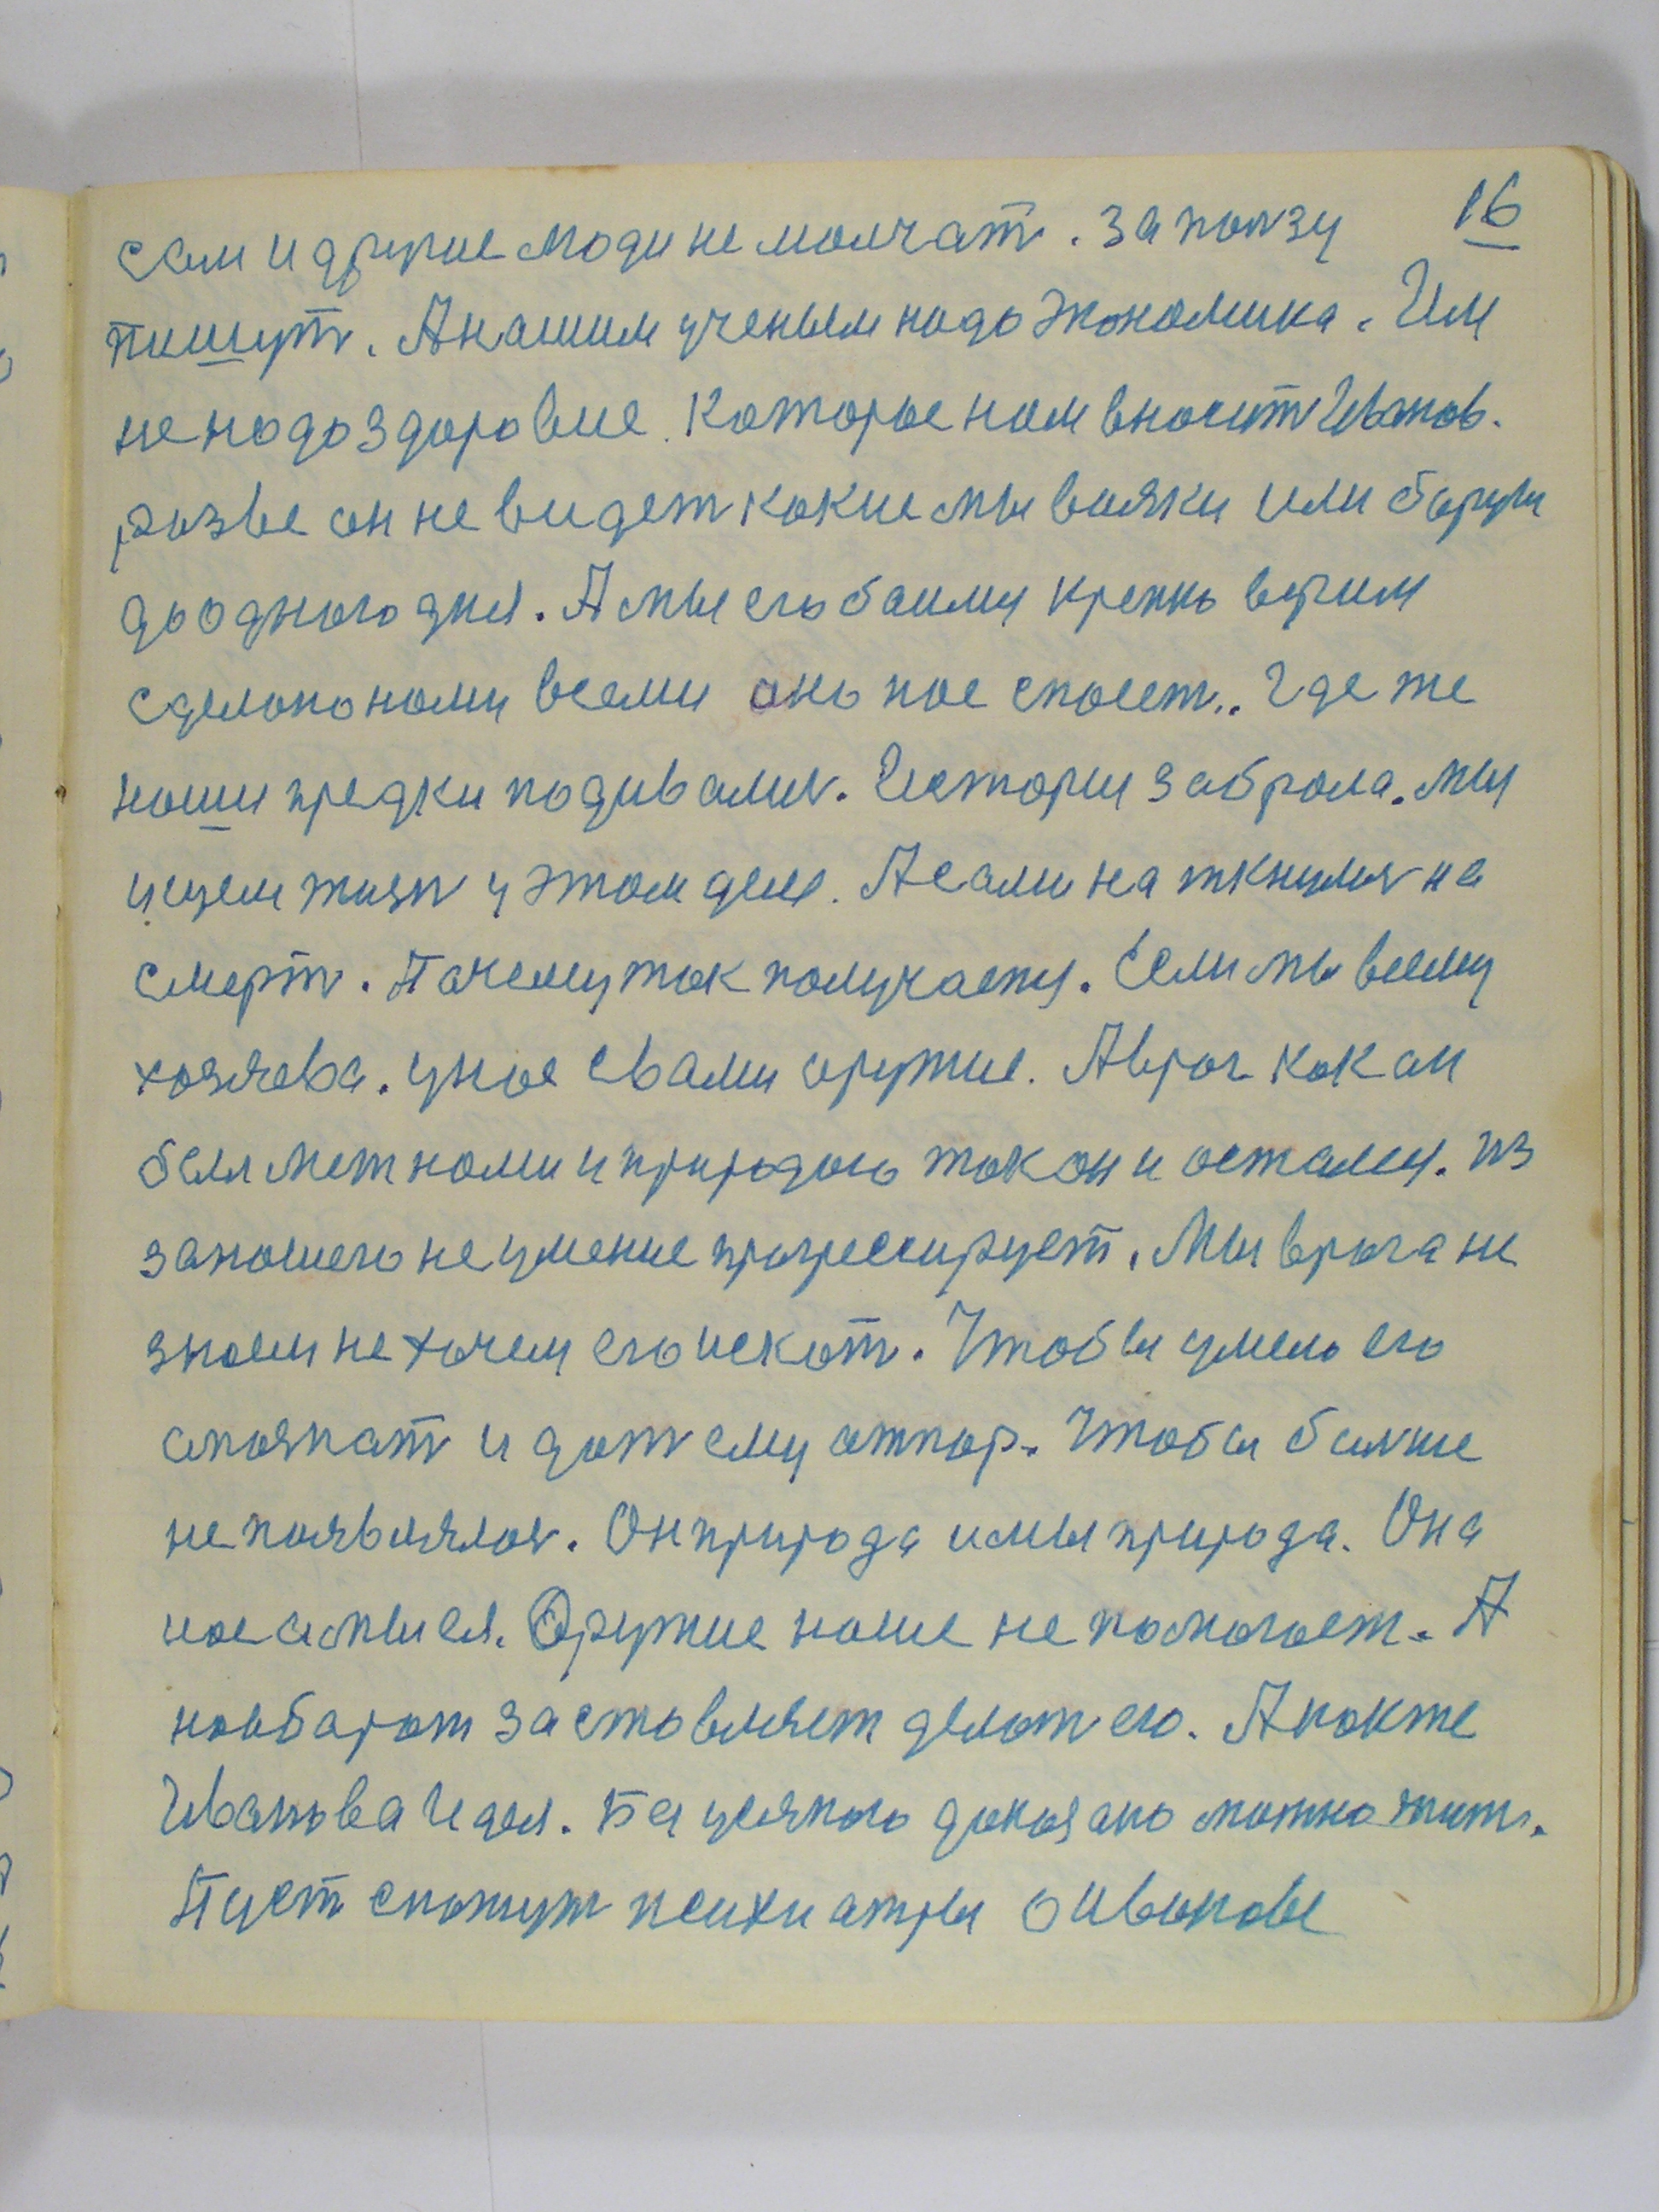 16
сам и другие люди не молчат. За ползу
пишут. А нашим ученым надо экономика. Им
не надо здоровие. Которое нам вносит Иванов.
разве он не видет какие мы вояки или барци
до одного дня. А мы его баиму крепко верим
сделоно нами всеми оно нас спасет.. Где же
наши предки подивалис. Истории забрала. мы
ищем жизн у этом деле. А сами на ткнулис на
смерт. Почему так получаетця. Если мы всему
хозяева. у нас с вами оружие. А враг как он
был мет нами и природаю так он и осталця. из
за нашего не умение прогрессирует. Мы врага не
знаем не хочем его искат. Чтобы умело его
опознат и дат ему отпор. Чтобы болше
не появлялос. Он природа и мы природа. Она
нас а мы ея. Оружие наше не помогает. А
наабарот заставляет делат его. А покже
Иванова Идея. Без усякого доказано можно жит.
Пуст скажут психиатры о Иванове